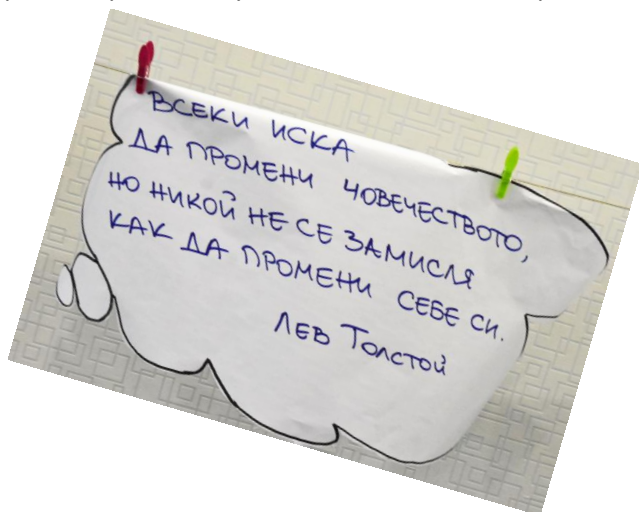 ВСЕКИ ИСКА
ДА ПРОМЕНИ ЧОВЕЧЕСТВОТО,
НО НИКОЙ НЕ СЕ ЗАМИСЛЯ
КАК ДА ПРОМЕНИ СЕБЕ СИ.
ЛЕВ ТОЛСТОЙ